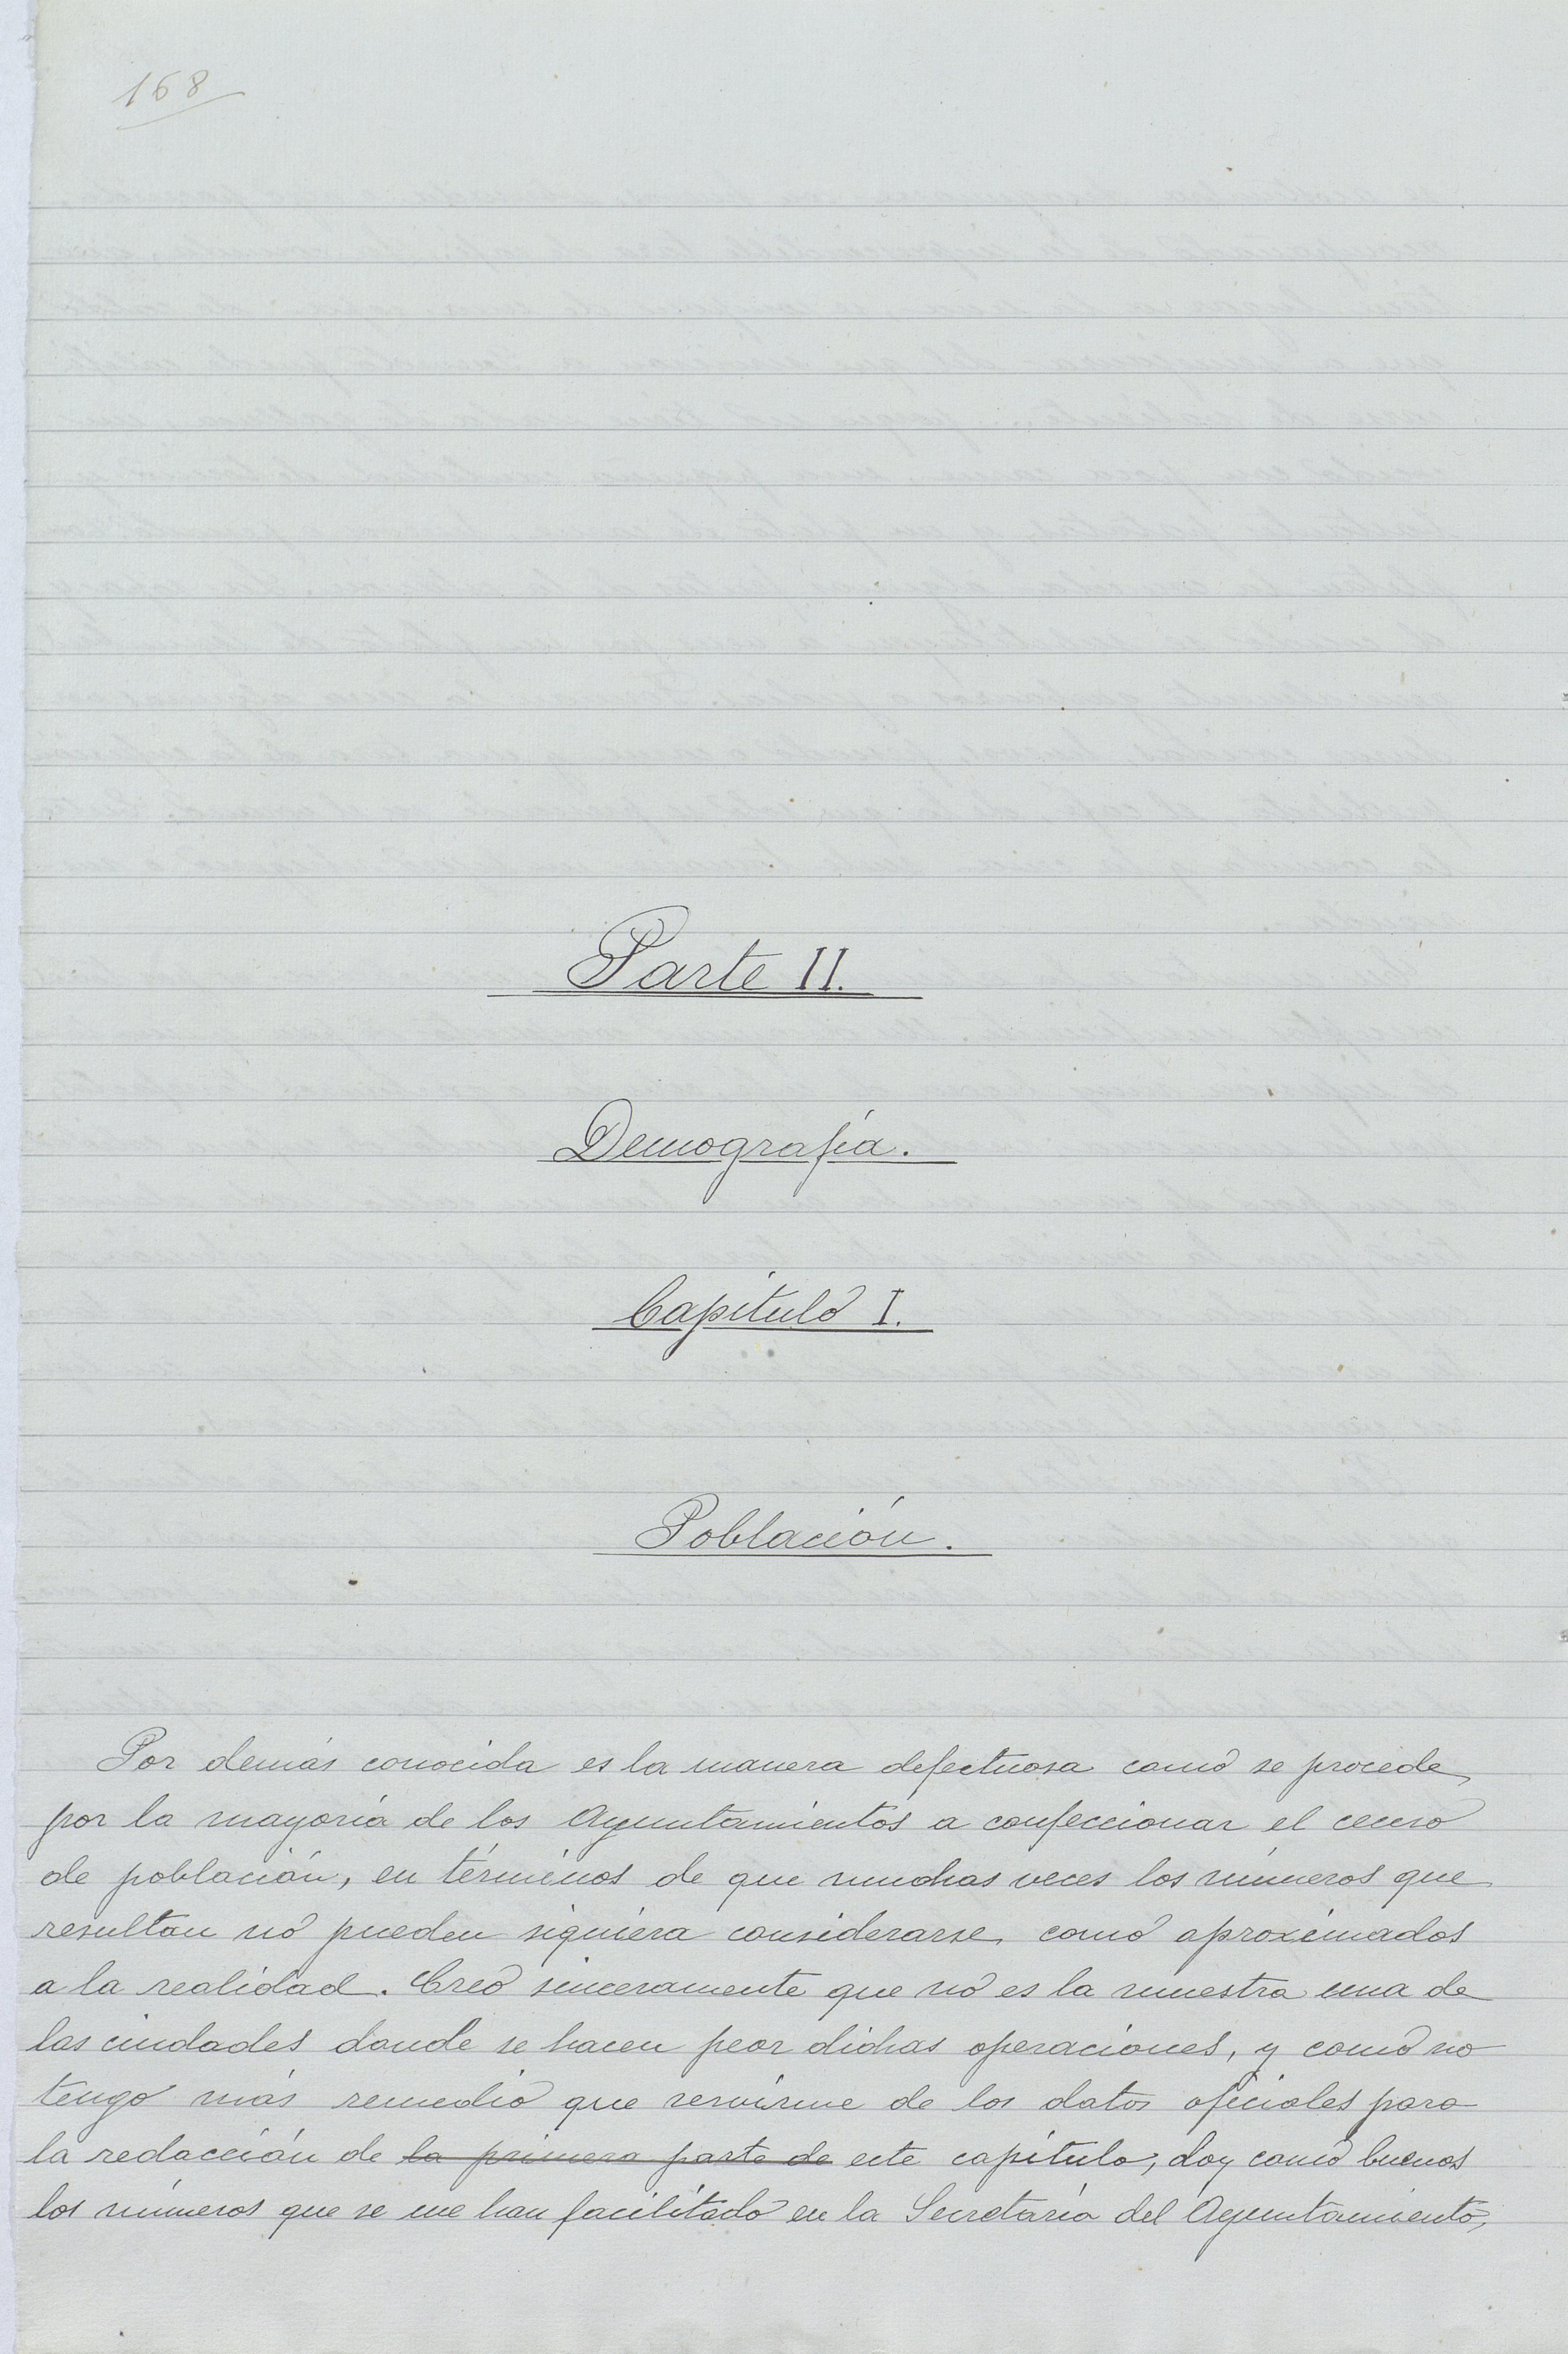 168
Parte II.
Demografía.
Capítulo I.
Población.
Por demás conocida es la manera defectuosa como se procede
por la mayoría de los Ayuntamientos a confeccionar el censo
de población, en términos de que muchas veces los números que
resultan no pueden siquiera considerarse como aproximados
a la realidad. Creo sinceramente que no es la nuestra una de
las ciudades donde se hacen peor dichas operaciones, y como no
tengo más remedio que servirme de los datos oficiales para
la redacción de la primera parte de este capítulo, doy como buenos
los números que se me han facilitado en la Secretaría del Ayuntamiento,